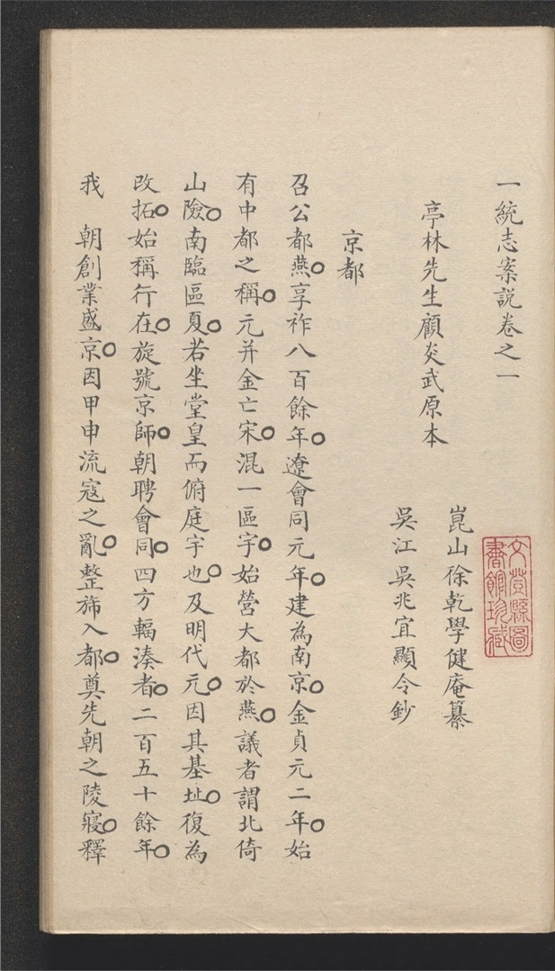 一統志案說卷之一
文登縣圖
書館珍藏
亭林先生顧炎武原本
崑山徐乾學健庵纂
吳江吳兆宜顯令鈔
京都
召公都燕享祚八百餘年遼會同元年建為南京金貞元二年始
有中都之稱元并金亡宋混一區宇始營大都於燕議者謂北倚
山險南臨區夏若坐堂皇而俯庭宇也及明代元因其基址復為
改拓始稱行在旋號京師朝聘會同四方輻湊者二百五十餘年
我 朝創業盛京因甲申流寇之亂整旆入都奠先朝之陵寢釋